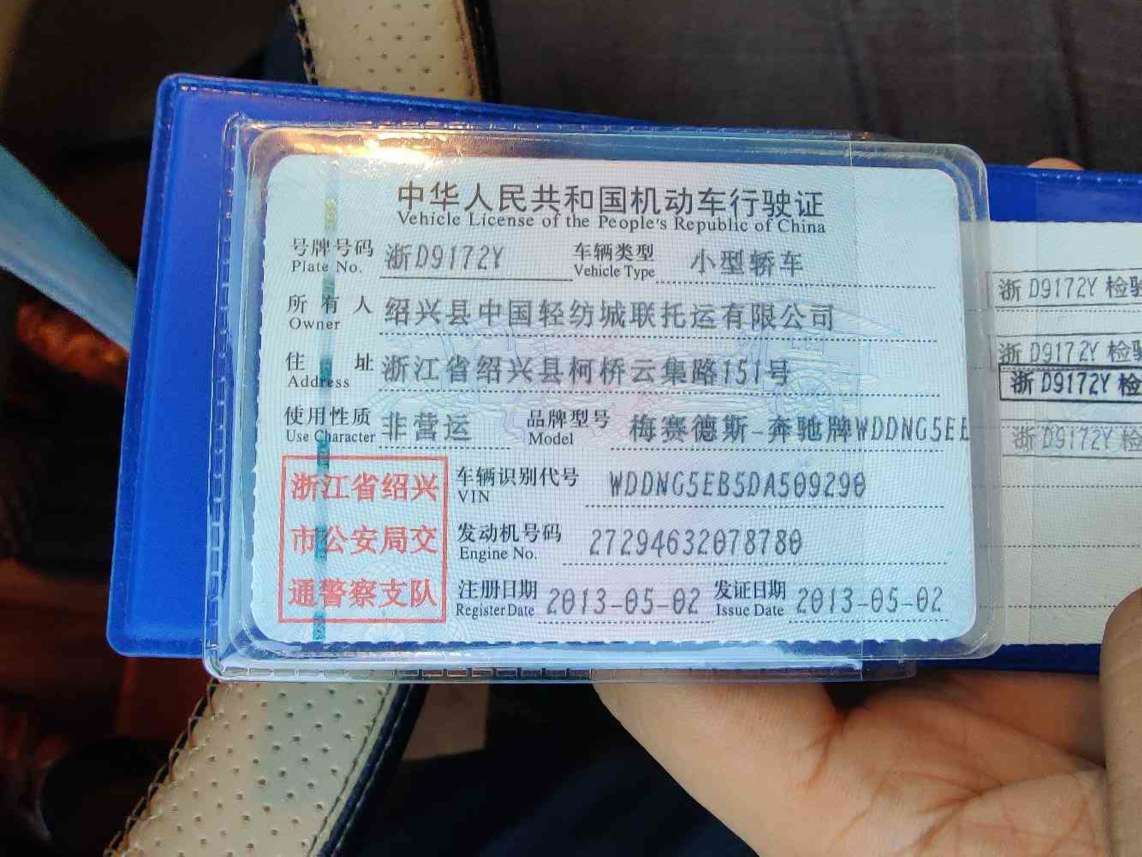 中华人民共和国机动车行驶证
Vehicle License of the People's Republic of China
号牌号码 浙D9172Y 车辆类型 小型轿车
Plate No. Vehicle Type
所有人 绍兴县中国轻纺城联托运有限公司
Owner
住址 浙江省绍兴县柯桥云集路151号
Address
使用性质 非营运 品牌型号 梅赛德斯-奔驰牌WDDNG5EE
Use Character Model
浙江省绍兴
市公安局交
通警察支队
车辆识别代号 WDDNG5EB5DA509290
VIN
发动机号码 27294632078780
Engine No.
注册日期 2013-05-02 发证日期 2013-05-02
Register Date Issue Date
浙D9172Y 检验
浙D9172Y 检验
浙D9172Y 检
浙D9172Y 检